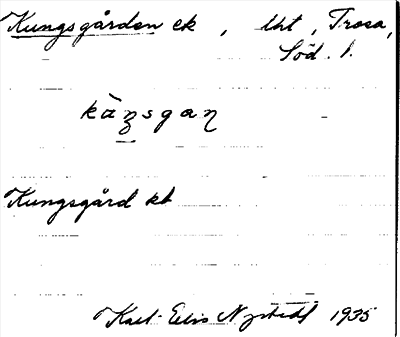 Kungsgården ek, lht, Trosa,
Söd. l.
kàŋsgaɳ
Kungsgård kt
Karl-Elis Nystedt 1935